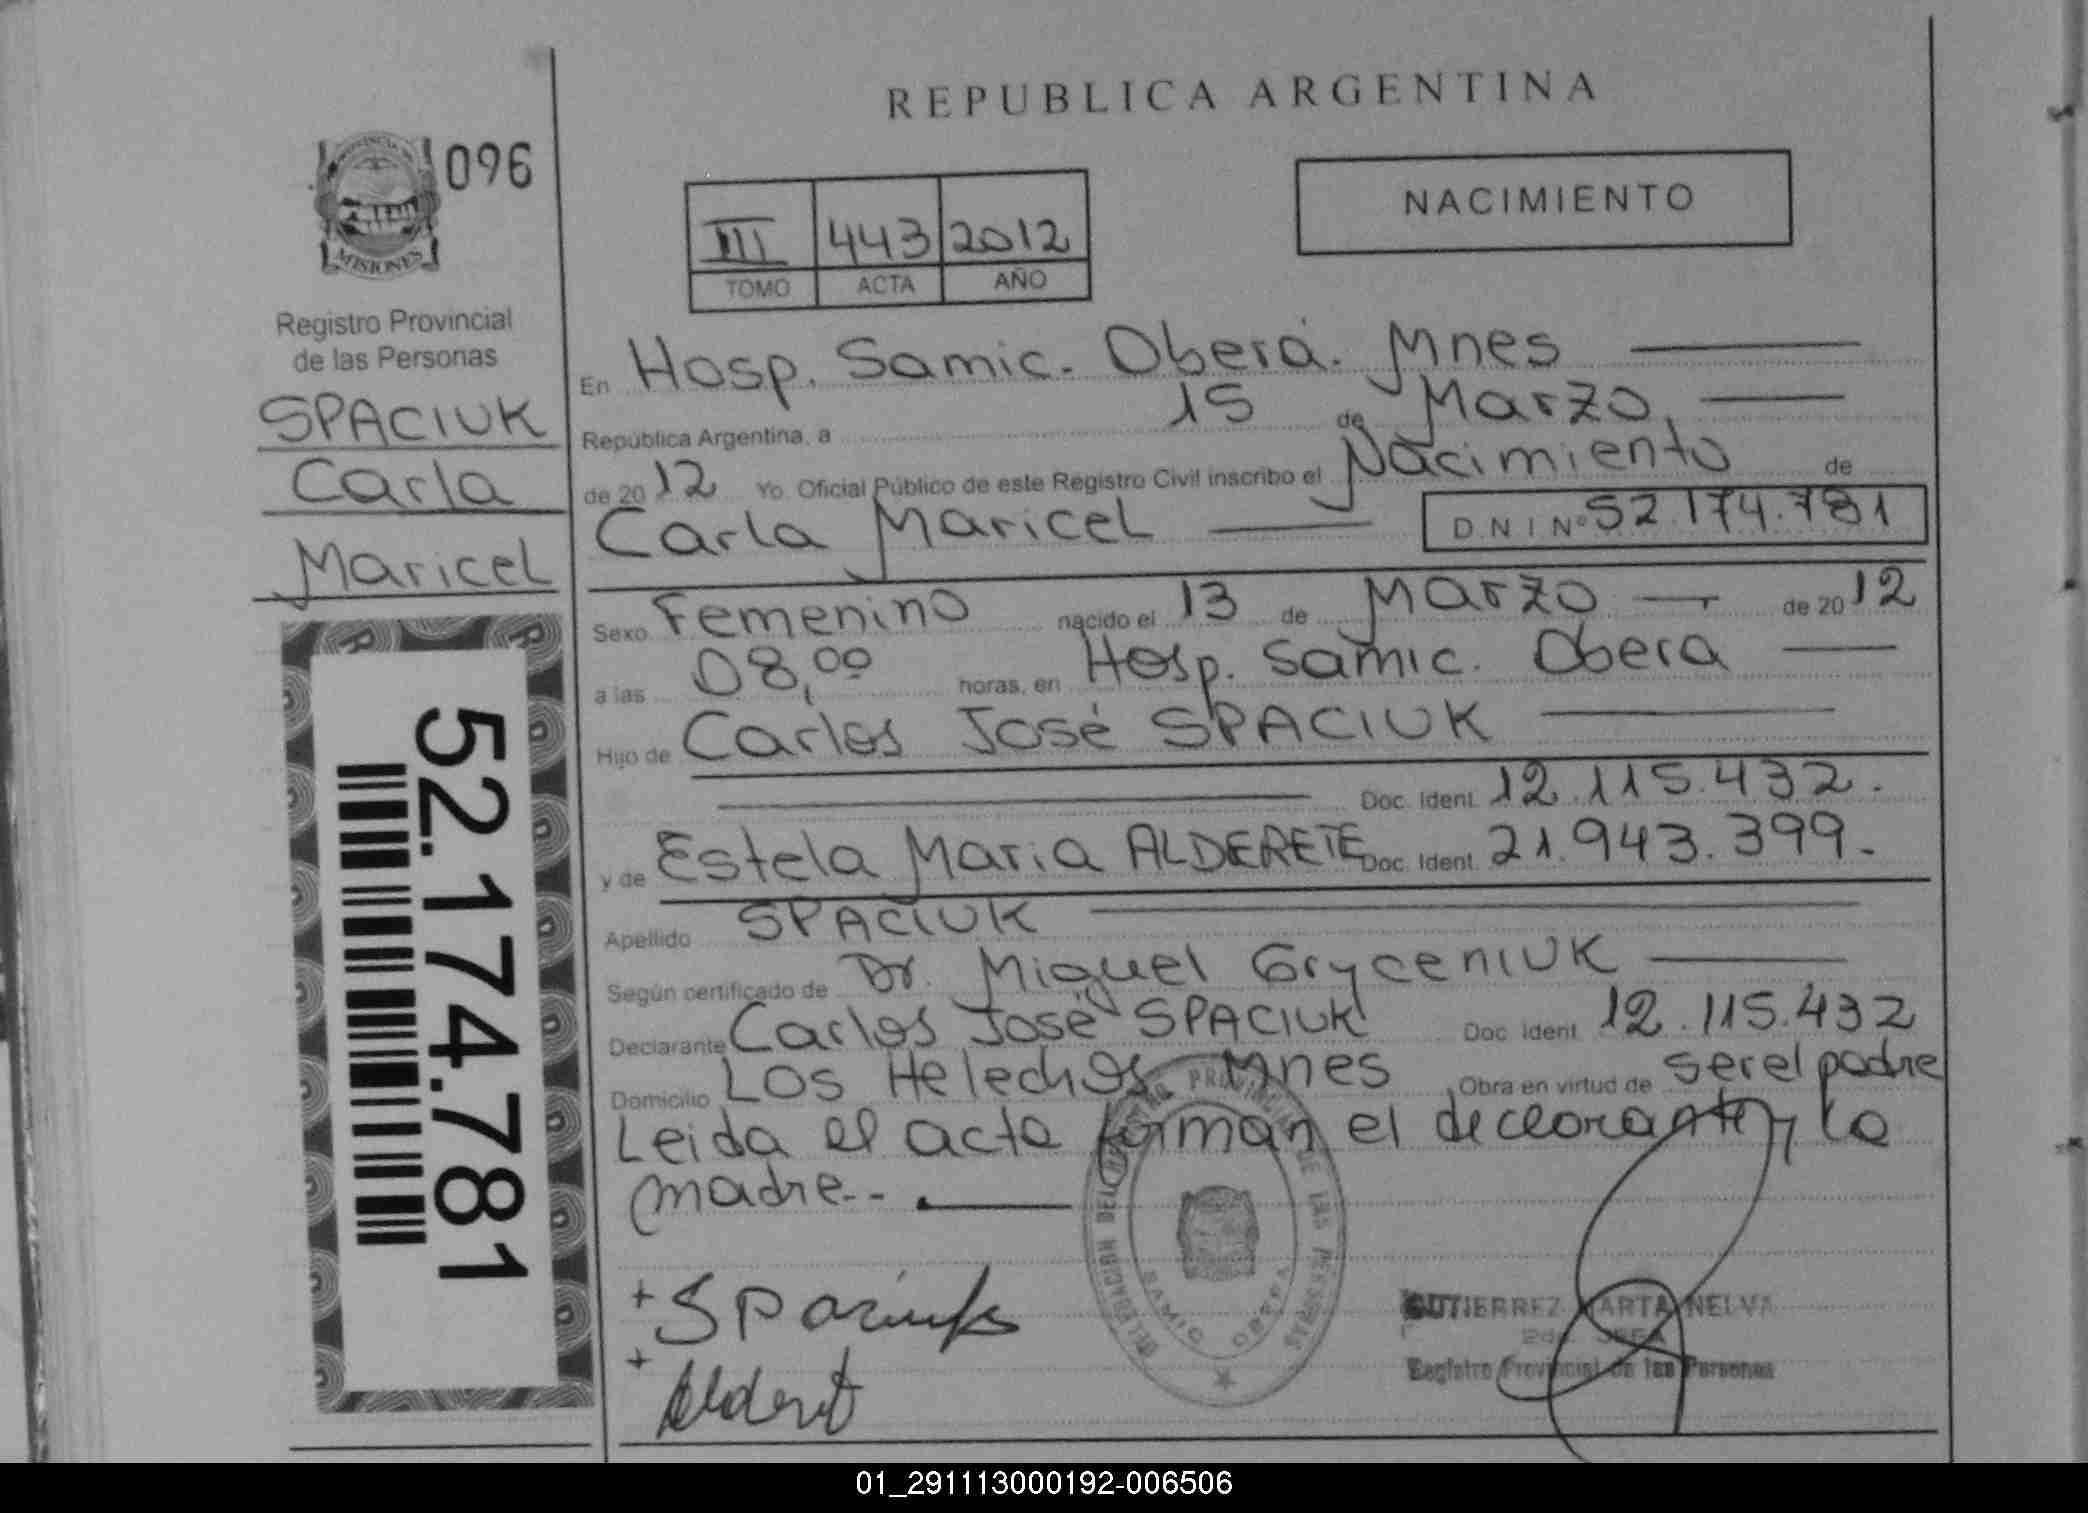 REPUBLICA ARGENTINA
096
MISIONES
NACIMIENTO
III 443 2012
TOMO ACTA AÑO
Registro Provincial
de las Personas
SPACIUK
Carla
Maricel
52.174.781
En Hosp. Samic. Oberá. Mnes
República Argentina, a 15 de Marzo
de 2012 Yo. Oficial Público de este Registro Civil inscribo el Nacimiento de
Carla Maricel D.N.I Nº 52.174.781
Sexo Femenino nacido el 13 de Marzo de 2012
a las 08,00 horas, en Hosp. Samic. Obera
Hijo de Carlos José SPACIUK
Doc. Ident. 12.115.432.
y de Estela Maria ALDERETE Doc. Ident. 21.943.399.
Apellido SPACIUK
Según certificado de Dr. Miguel GryceniUK
Declarante Carlos José SPACIUK Doc. Ident. 12.115.432
Domicilio Los Helechos Mnes Obra en virtud de ser el padre
Leida el acta firman el declarante y la
madre..
DELEGACION DEL REGISTRO PROVINCIAL DE LAS PERSONAS
SAMIC OBERA
+ Spaciuk
+ Alderet
GUTIERREZ MARTA NELVA
JEFA
Registro Provincial de las Personas
01_291113000192-006506